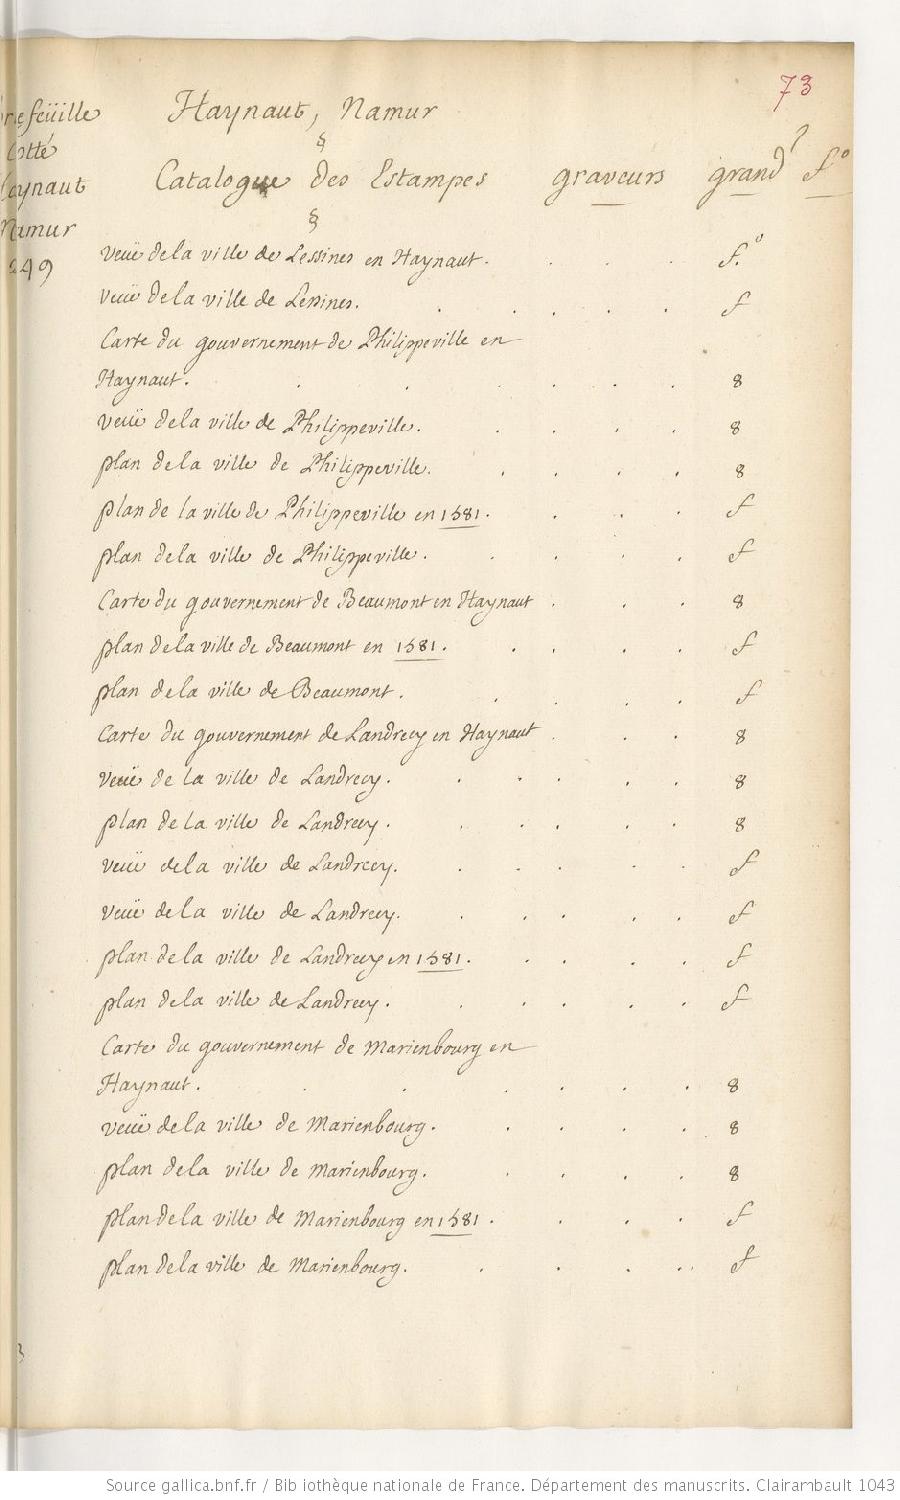 73
Haynaut, Namur
§
Catalogue des Estampes graveurs grand? f.o
§
feüille
cotté
aynaut
Namur
249
veuë de la ville de Lessines en Haynaut. f.o
veuë de la ville de Lessines. f
Carte du gouvernement de Philippeville en
Haynaut. 8
veuë de la ville de Philippeville. 8
plan de la ville de Philippeville. 8
plan de la ville de Philippeville en 1581. f
plan de la ville de Philippeville. f
Carte du gouvernement de Beaumont en Haynaut 8
plan de la ville de Beaumont en 1581. f
plan de la ville de Beaumont. f
Carte du gouvernement de Landrecy en Haynaut 8
veuë de la ville de Landrecy. 8
plan de la ville de Landrecy. 8
veuë de la ville de Landrecy. f
veuë de la ville de Landrecy. f
plan de la ville de Landrecy en 1581. f
plan de la ville de Landrecy. f
Carte du gouvernement de Marienbourg en
Haynaut. 8
veuë de la ville de Marienbourg. 8
plan de la ville de Marienbourg. 8
plan de la ville de Marienbourg en 1581. f
plan de la ville de Marienbourg. f
Source gallica.bnf.fr / Bibliothèque nationale de France. Département des manuscrits. Clairambault 1043